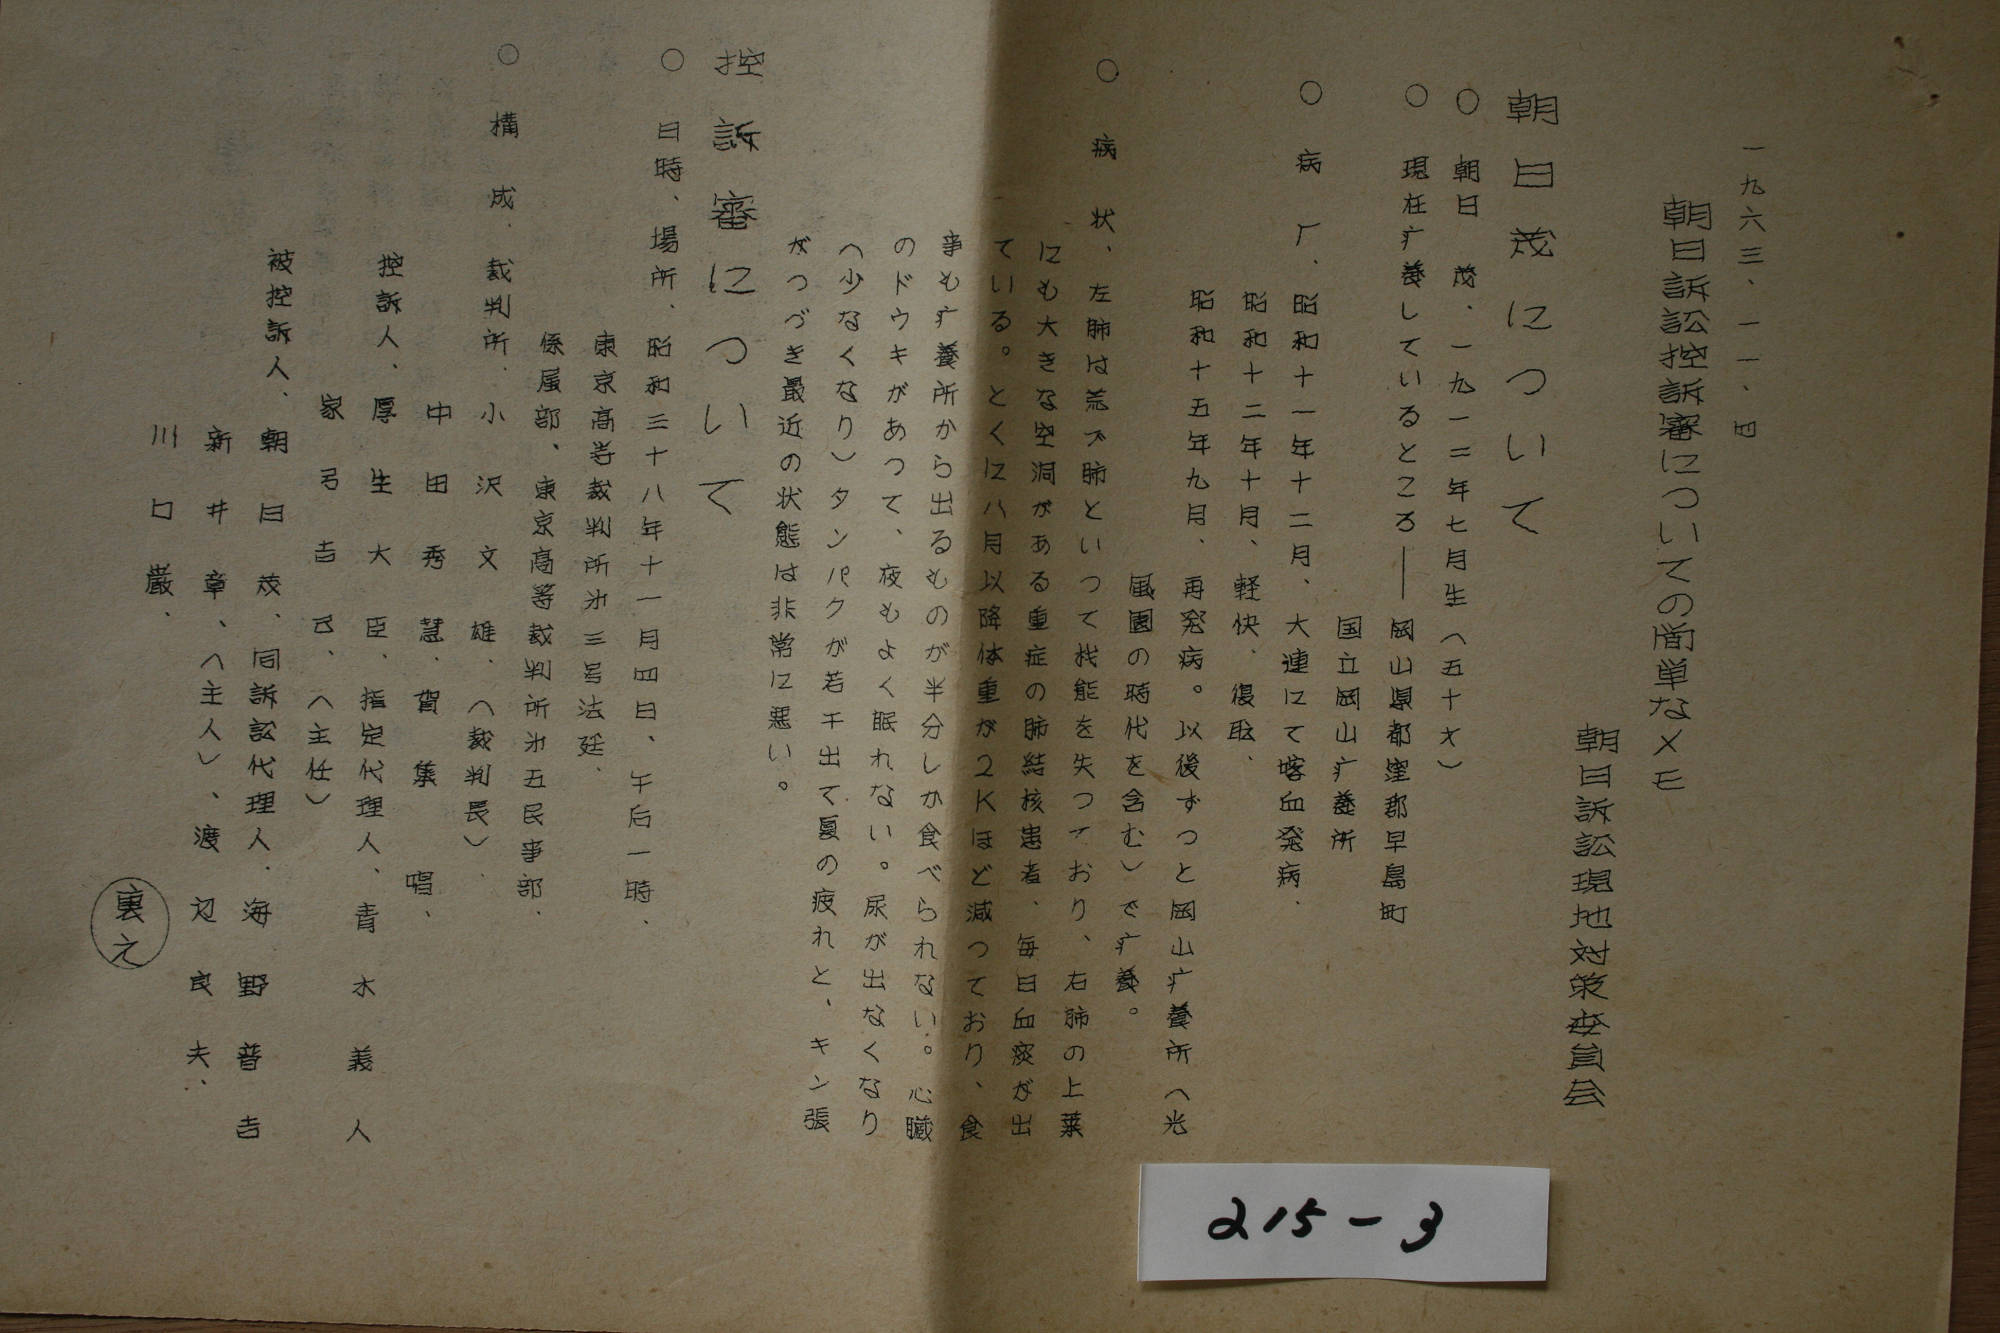 一九六三、一一、四
朝日訴訟控訴審についての簡単なメモ
朝日訴訟現地対策委員会
朝日茂について
○ 朝日 茂、一九一三年七月生(五十才)
○ 現在疒養しているところ――岡山県都窪郡早島町
国立岡山疒養所
○ 病 厂、昭和十一年十二月、大連にて喀血発病、
昭和十二年十月、軽快、復職、
昭和十五年九月、再発病。以後ずっと岡山疒養所(光
風園の時代を含む)で疒養。
○ 病 状、左肺は荒ブ肺といって機能を失っており、右肺の上葉
にも大きな空洞がある重症の肺結核患者、毎日血痰が出
ている。とくに八月以降体重が2Kほど減っており、食
事も疒養所から出るものが半分しか食べられない。心臓
のドウキがあって、夜もよく眠れない。尿が出なくなり
(少なくなり)タンパクが若干出て夏の疲れと、キン張
がつづき最近の状態は非常に悪い。
控訴審について
○ 日時、場所、昭和三十八年十一月四日、午后一時、
東京高等裁判所第三号法廷、
係属部、東京高等裁判所第五民事部、
○ 構 成、裁判所、小沢文雄、(裁判長)、
中田秀慧、賀集 唱、
控訴人、厚生大臣、指定代理人、青木義人
家弓吉己、(主任)
被控訴人、朝日茂、同訴訟代理人、海野晋吉
新井章、(主人)、渡辺良夫、
川口巌、
裏え
215-3